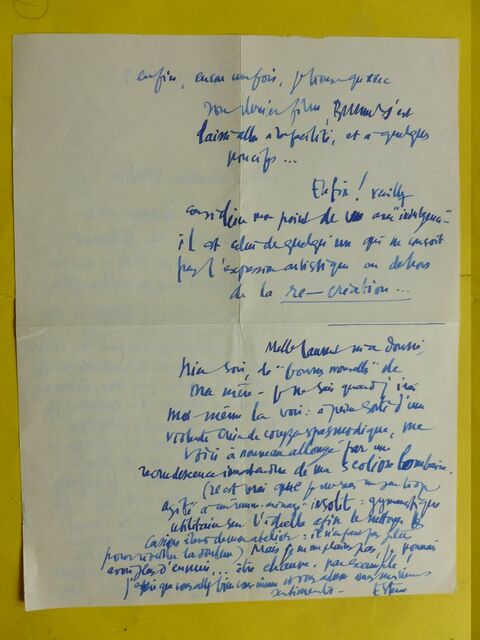 enfin, encore une fois, je trouve qu'avec
son dernier film, B s'est
laissé aller à la facilité, et à quelques
poncifs...
Enfin! veuillez
considérer mon point de vue avec "indulgence" -
il est celui de quelqu'un qui ne conçoit
pas l'expression artistique en dehors
de la re-création...
Melle Laurent m'a donné,
hier soir, de "bonnes nouvelles" de
ma mère - Je ne sais quand j'irai
moi-même la voir: à peine sorti d'un
violente crise de spasmodique, me
voici à nouveau allongé par une
recrudescence de ma scoliose lombaire.
(Il est vrai que je me suis un peu trop
agité à un insolite: gymnastique
utilitaire sur l'échelle afin de nettoyer les
de mon atelier: il n'en faut pas plus
pour la douleur) Mais je ne me plains pas, je pourrais
avoir plus d'ennuis... être chauve, par exemple!
J'espère que vous allez bien vous-même et vous adresse mes meilleurs
sentiments -